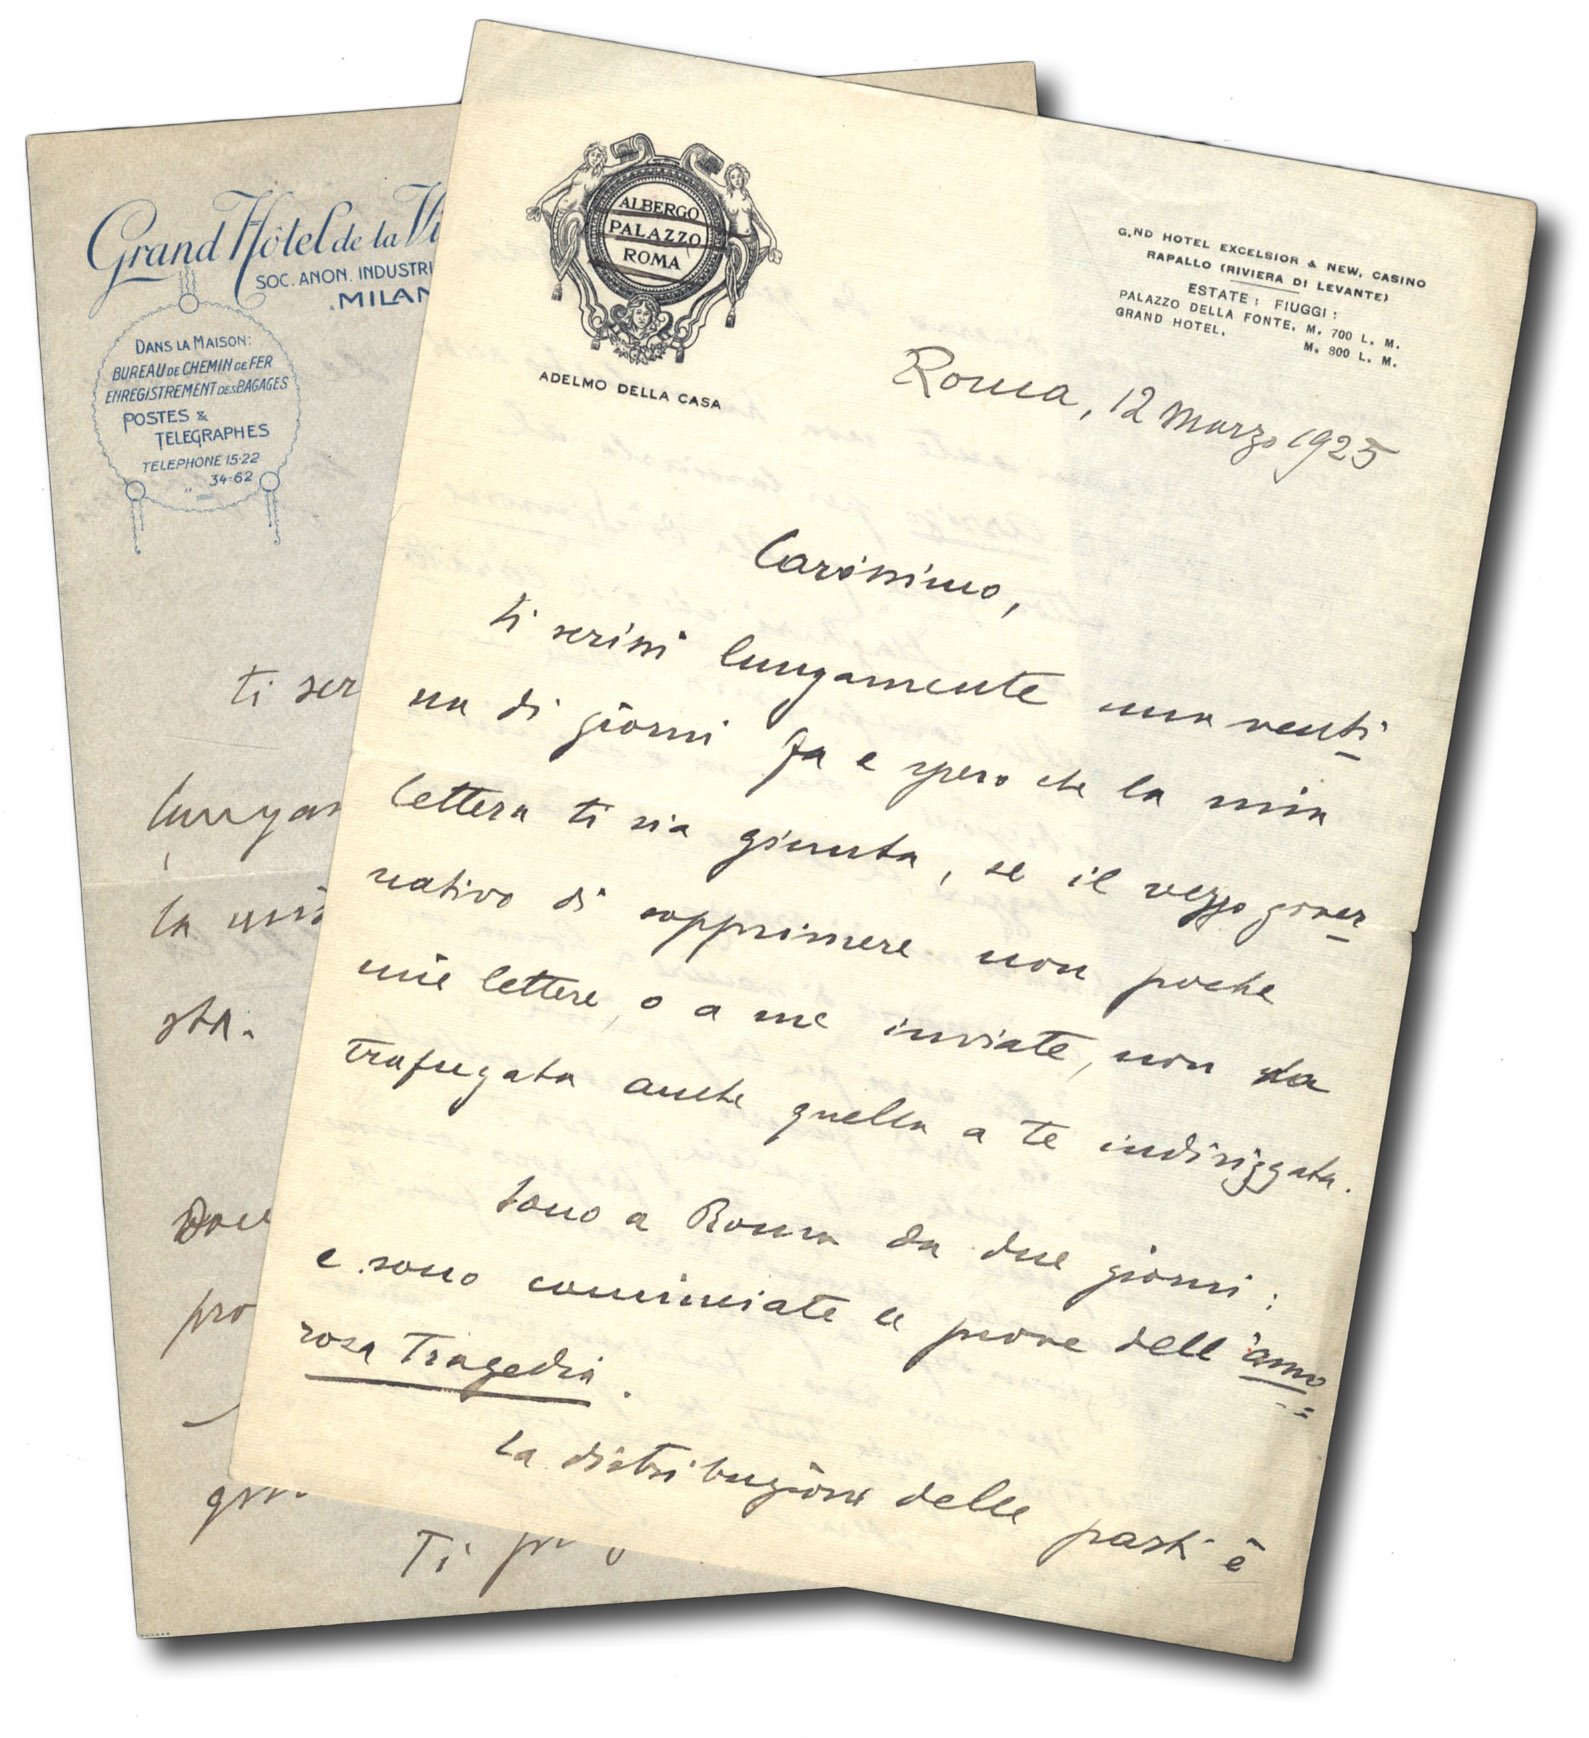 Grand Hôtel de la Vi
SOC. ANON. INDUSTRI
MILAN
DANS LA MAISON:
BUREAU DE CHEMIN DE FER
ENREGISTREMENT DES BAGAGES
POSTES &
TELEGRAPHES
TELEPHONE 15-22
" 34-62
ti scr
lungam
la mia
sta.
pro
Ti
ALBERGO
PALAZZO
ROMA
ADELMO DELLA CASA
G.ND HOTEL EXCELSIOR & NEW, CASINO
RAPALLO (RIVIERA DI LEVANTE)
ESTATE: FIUGGI:
PALAZZO DELLA FONTE. M. 700 L. M.
GRAND HOTEL. M. 800 L. M.
Roma, 12 Marzo 1925
Carissimo,
ti scrissi lungamente una venti
na di giorni fa e spero che la mia
lettera ti sia giunta, se il vezzo gover
nativo di sopprimere non poche
mie lettere, o a me inviate, non ha
trafugata anche quella a te indirizzata.
Sono a Roma da due giorni:
e sono cominciate le prove dell'amo=
rosa Tragedia.
La distribuzione delle parti è